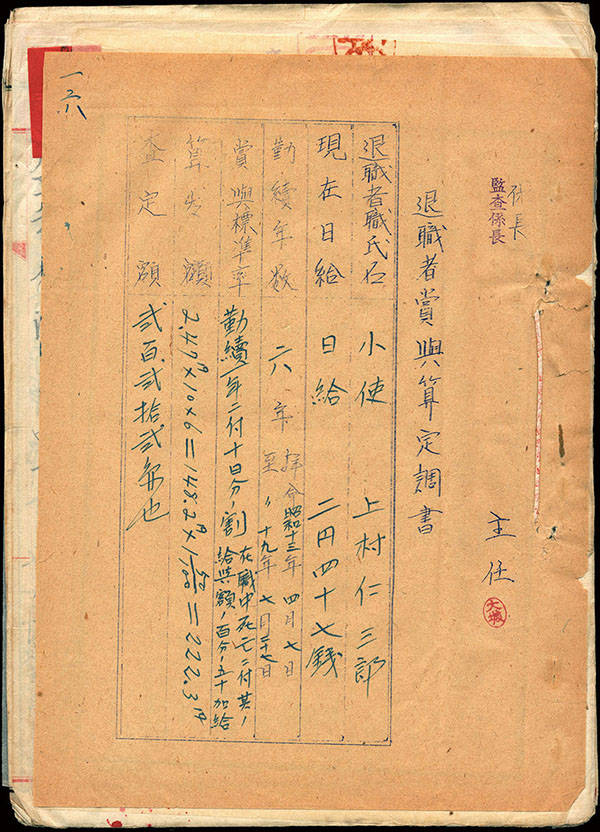 係長
監査係長
主任
大城
退職者賞與算定調書
退職者職氏名 小使 上村仁三郎
現在日給 日給 二円四十七銭
勤続年数 六年 拝命昭和十三年四月七日
至〃十九年七月二十七日
賞與標準率 勤續一年ニ付十日分ノ割 在職中死亡ニ付其ノ
給與額ノ百分ノ五十加給
算出額 2.47円×10×6=148.2円×1 50/100=222.3円
査定額 弐百弐拾弐円也
一六